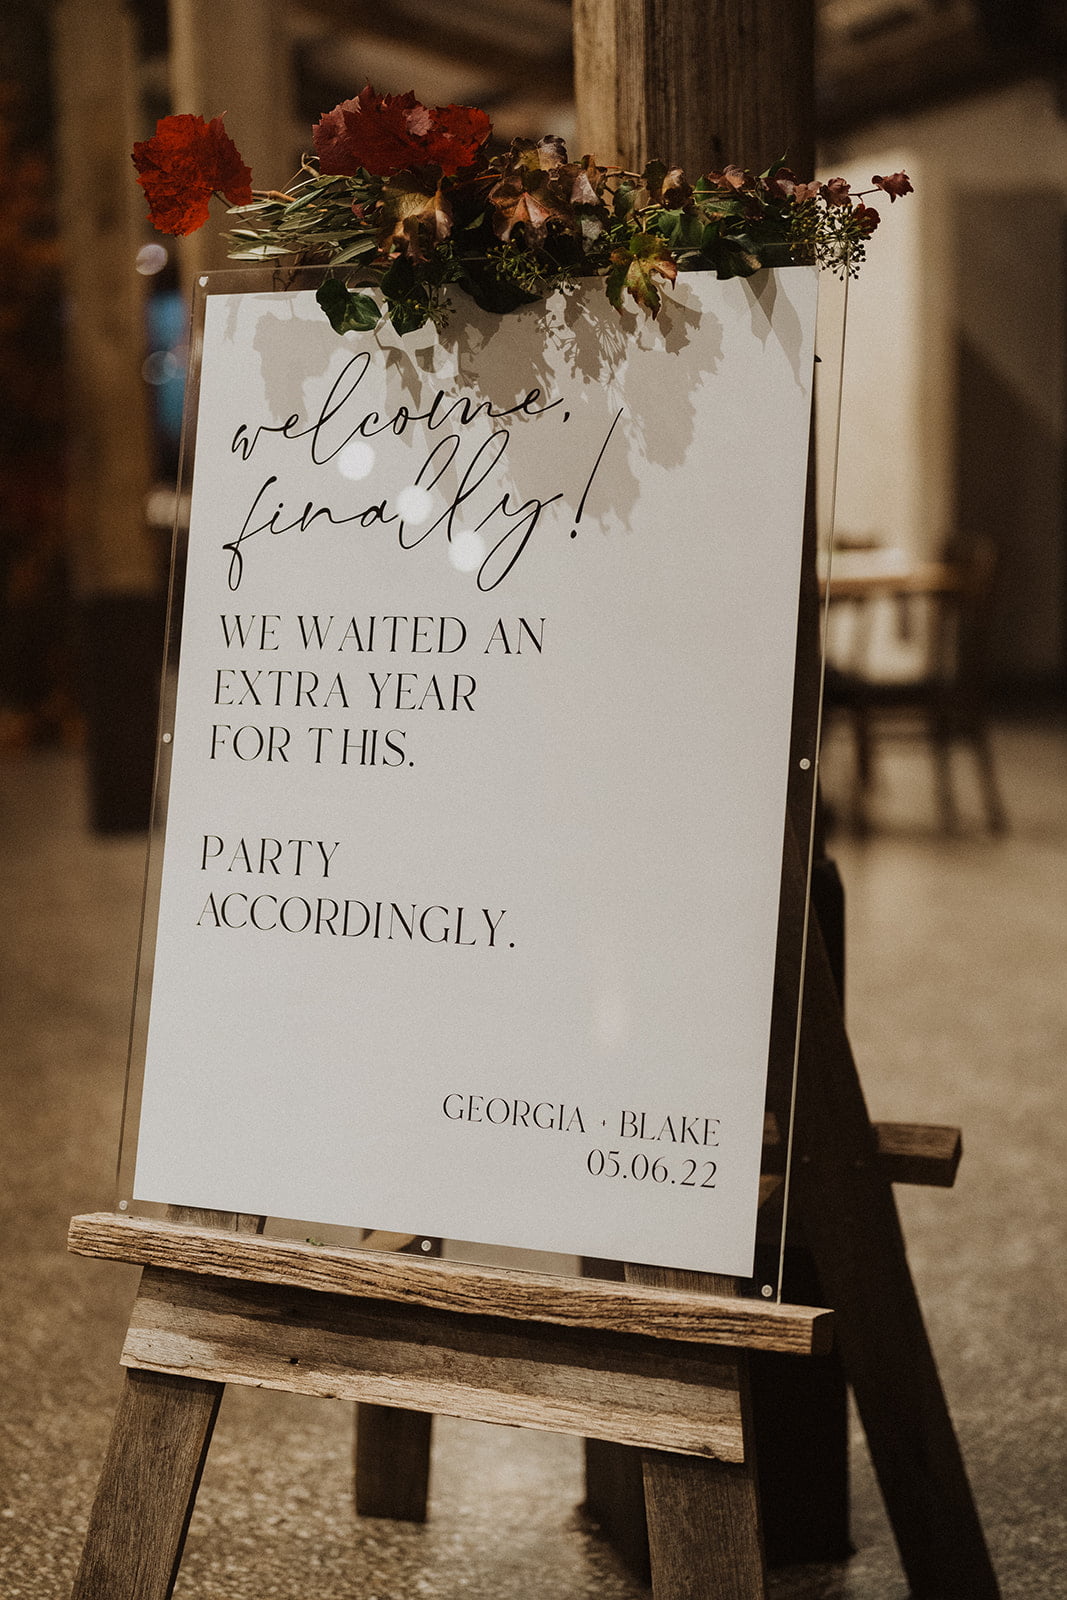 welcome,
finally!
WE WAITED AN
EXTRA YEAR
FOR THIS.
PARTY
ACCORDINGLY.
GEORGIA + BLAKE
05.06.22